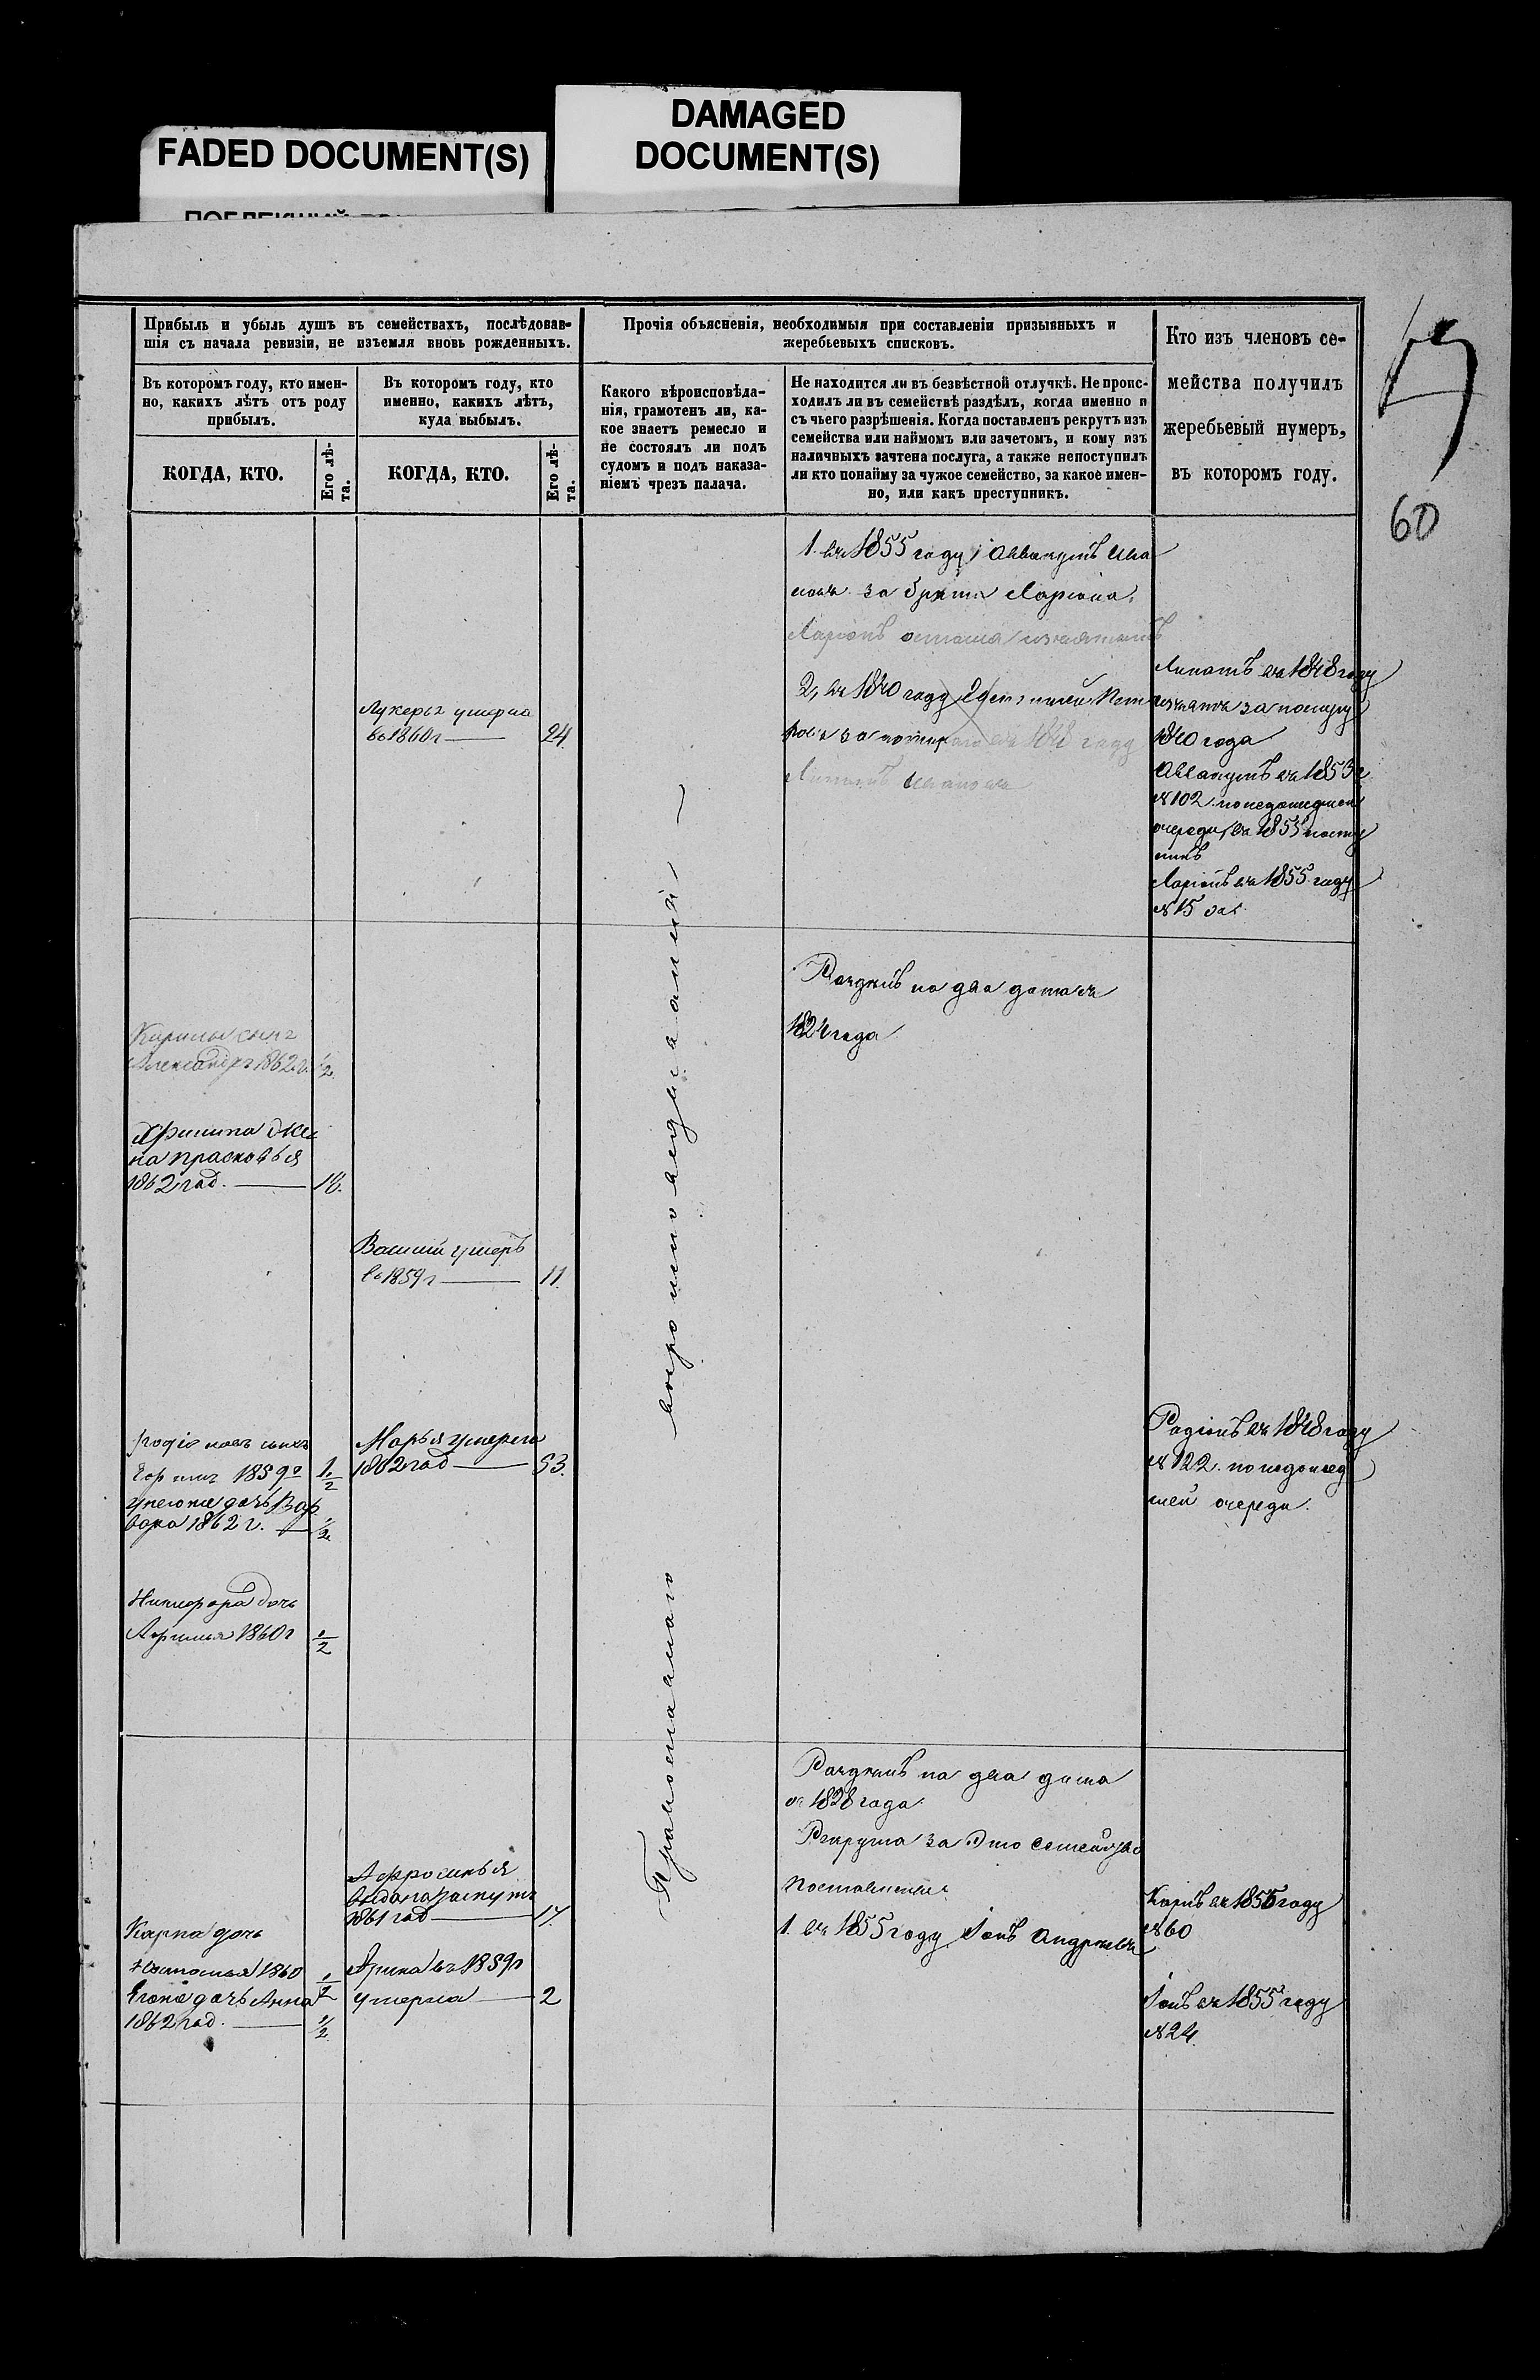 FADED DOCUMENT(S)
DAMAGED
DOCUMENT(S)
Прибыль и убыль душъ въ семействахъ, послѣдовав-
шія съ начала ревизіи, не изъемля вновь рожденныхъ.
Въ которомъ году, кто имен-
но, какихъ лѣтъ отъ роду
прибылъ.
КОГДА, КТО.
Его лѣ-
та.
Въ которомъ году, кто
именно, какихъ лѣтъ,
куда выбылъ.
КОГДА, КТО.
Его лѣ-
та.
Прочія объясненія, необходимыя при составленіи призывныхъ и
жеребьевыхъ списковъ.
Какого вѣроисповѣда-
нія, грамотенъ ли, ка-
кое знаетъ ремесло и
не состоялъ ли подъ
судомъ и подъ наказа-
ніемъ чрезъ палача.
Не находится ли въ безвѣстной отлучкѣ. Не проис-
ходилъ ли въ семействѣ раздѣлъ, когда именно и
съ чьего разрѣшенія. Когда поставленъ рекрутъ изъ
семейства или наймомъ или зачетомъ, и кому изъ
наличныхъ зачтена послуга, а также непоступилъ
ли кто понайму за чужое семейство, за какое имен-
но, или какъ преступникъ.
Кто изъ членовъ се-
мейства получилъ
жеребьевый нумеръ,
въ которомъ году.
60
1. въ 1855 году Аввакумъ Ива
новъ за брата Ларіона.
Ларіонъ
2, въ 1840 году
за въ 1848 году
Липатъ Ивановъ
Липатъ въ 1848 году
за
1840 года
Аввакумъ въ 1853 г
№ 102. понедошедшей
очереди, въ 1855 посту
пилъ
Ларіонъ въ 1855 году
№ 15
Лукерья умерла
въ 1860 г — 24.
Раздѣлъ на два дома съ
1824 года
Кирилы сынъ
Александръ 1862 г. 1/2.
жена
на прасковья
1862 год. — 18.
Василій умеръ
въ 1859 г — 11
Родіоновъ сынъ
1859 г 1/2
унегоже дочь Вар
вара 1862 г. — 1/2
Марья умерла
1862 год — 53.
Родіонъ въ 1848 году
№ 122. понедошед
шей очереди.
Никифора дочь
1860 г 1/2
Православнаго вѣроисповеданія —
Раздѣлъ на два дома
съ 1828 года
Рекрута за это семейство
поставлены
1. въ 1855 году Іовъ Андреевъ
Афросинья
выдана замужъ
1861 год — 17.
Арина въ 1859 г
умерла — 2
Карпа дочь
1860 1/2
Егоже дочь Анна
1862 год. — 1/2.
Карпъ въ 1855 году
№ 60
Іовъ въ 1855 году
№ 24.